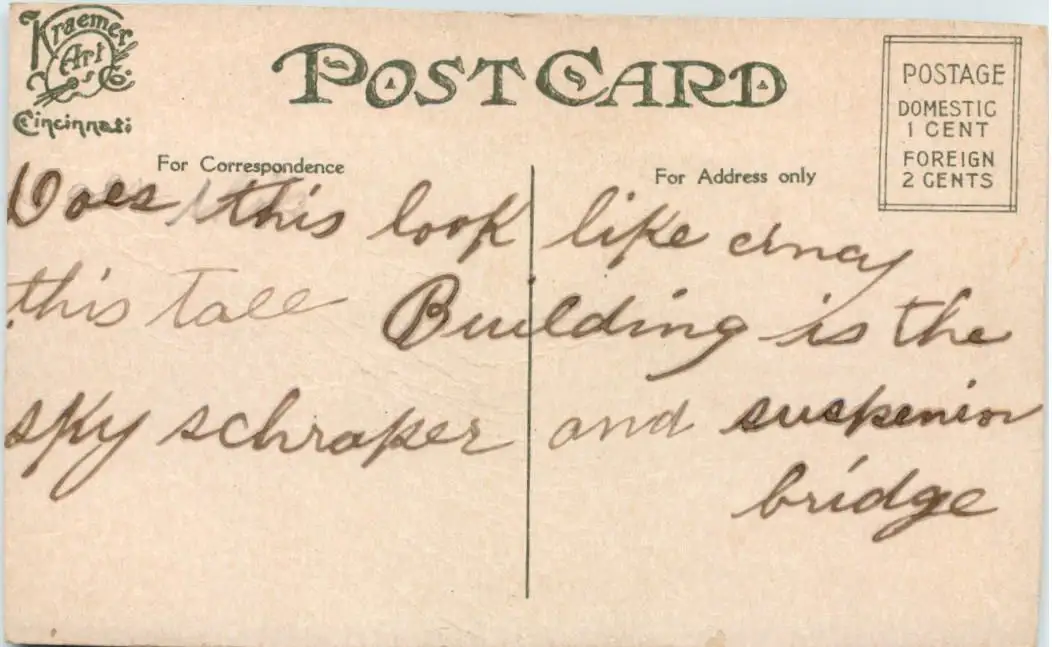 Kraemer
Art
Co.
Cincinnati
POST CARD
POSTAGE
DOMESTIC
1 CENT
FOREIGN
2 CENTS
For Correspondence
For Address only
Does this look like cincy
this tall Building is the
sky schraper and suspenion
bridge